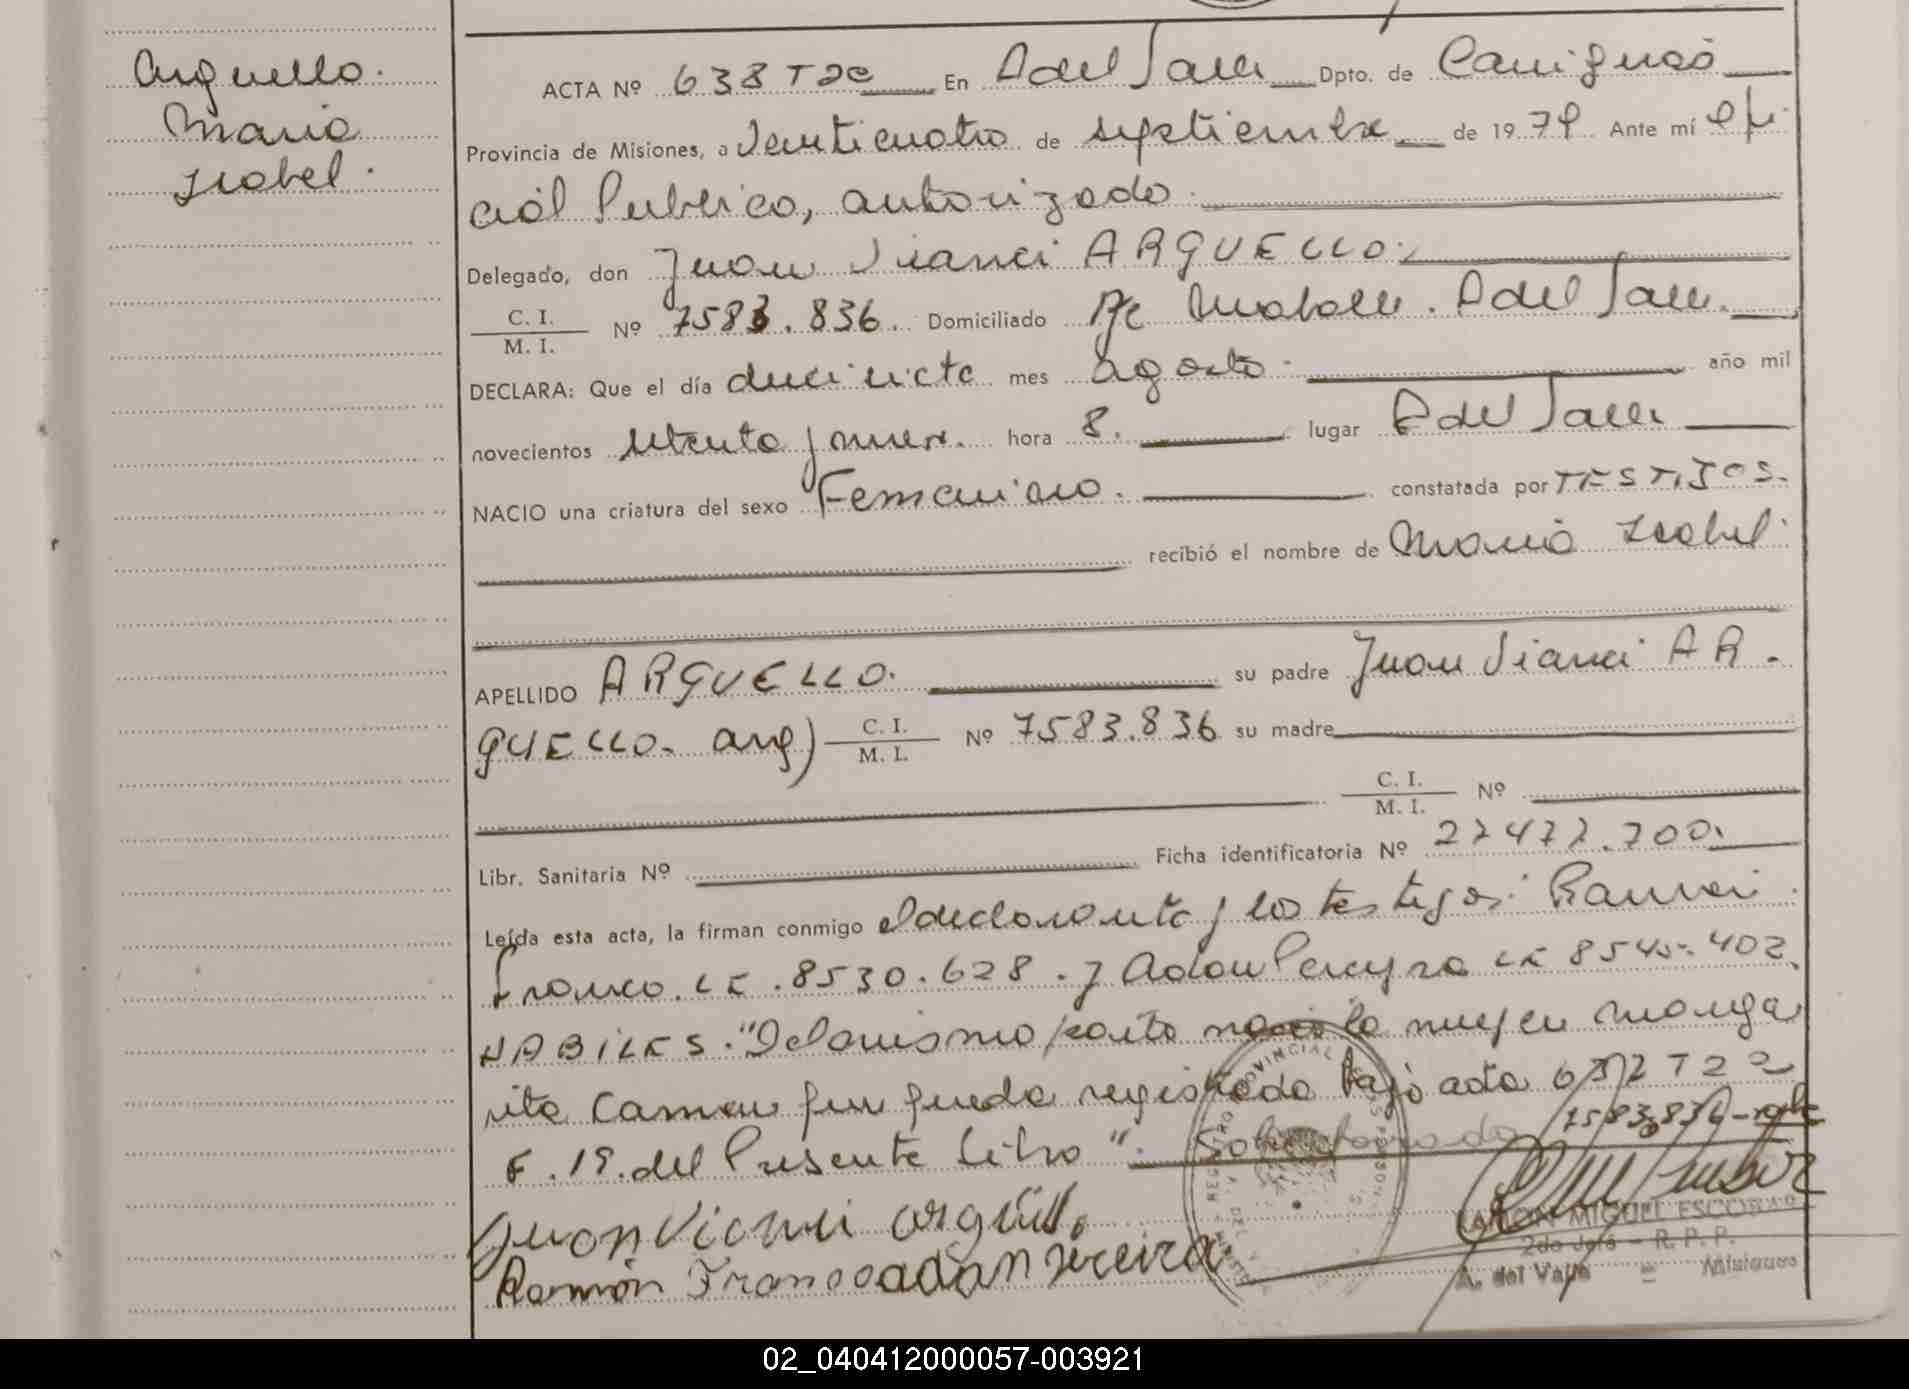 Arguello.
Maria
Isabel.
ACTA Nº 638 T 2º En A del Valle Dpto. de Cainguás
Provincia de Misiones, a Veinticuatro de septiembre de 1979 Ante mí Ofi
cial Publico, autorizado.
Delegado, don Juan Vianei ARGUELLO.
C. I.
M. I. Nº 7583.836. Domiciliado A del Valle.
DECLARA: Que el día diecisiete mes agosto. año mil
novecientos setenta y nueve. hora 8. lugar A del Valle
NACIO una criatura del sexo Femenino. constatada por TESTIJOS.
recibió el nombre de Maria Isabel.
APELLIDO ARGUELLO. su padre Juan Vianei AR-
GUELLO. arg) C. I.
M. I. Nº 7583.836 su madre
C. I.
M. I. Nº
Libr. Sanitaria Nº Ficha identificatoria Nº 27477.700.
Leída esta acta, la firman conmigo el declarante y los testigos: Ramon
Franco. LE. 8530.628. y Adan Pereyra LE 8545.402.
HABILES. "Del mismo parto nacio la mujer Marga
rita Carmen que queda registrada bajo acta 637 T 2º
F. 19. del Presente Libro".
7583.836 - vale
Juan Vianei Arguello
Ramón Franco adan pereira
REGISTRO PROVINCIAL
RAMON MIGUEL ESCOBAR
2do Jefe - R. P. P.
A. del Valle - Misiones
02_040412000057-003921